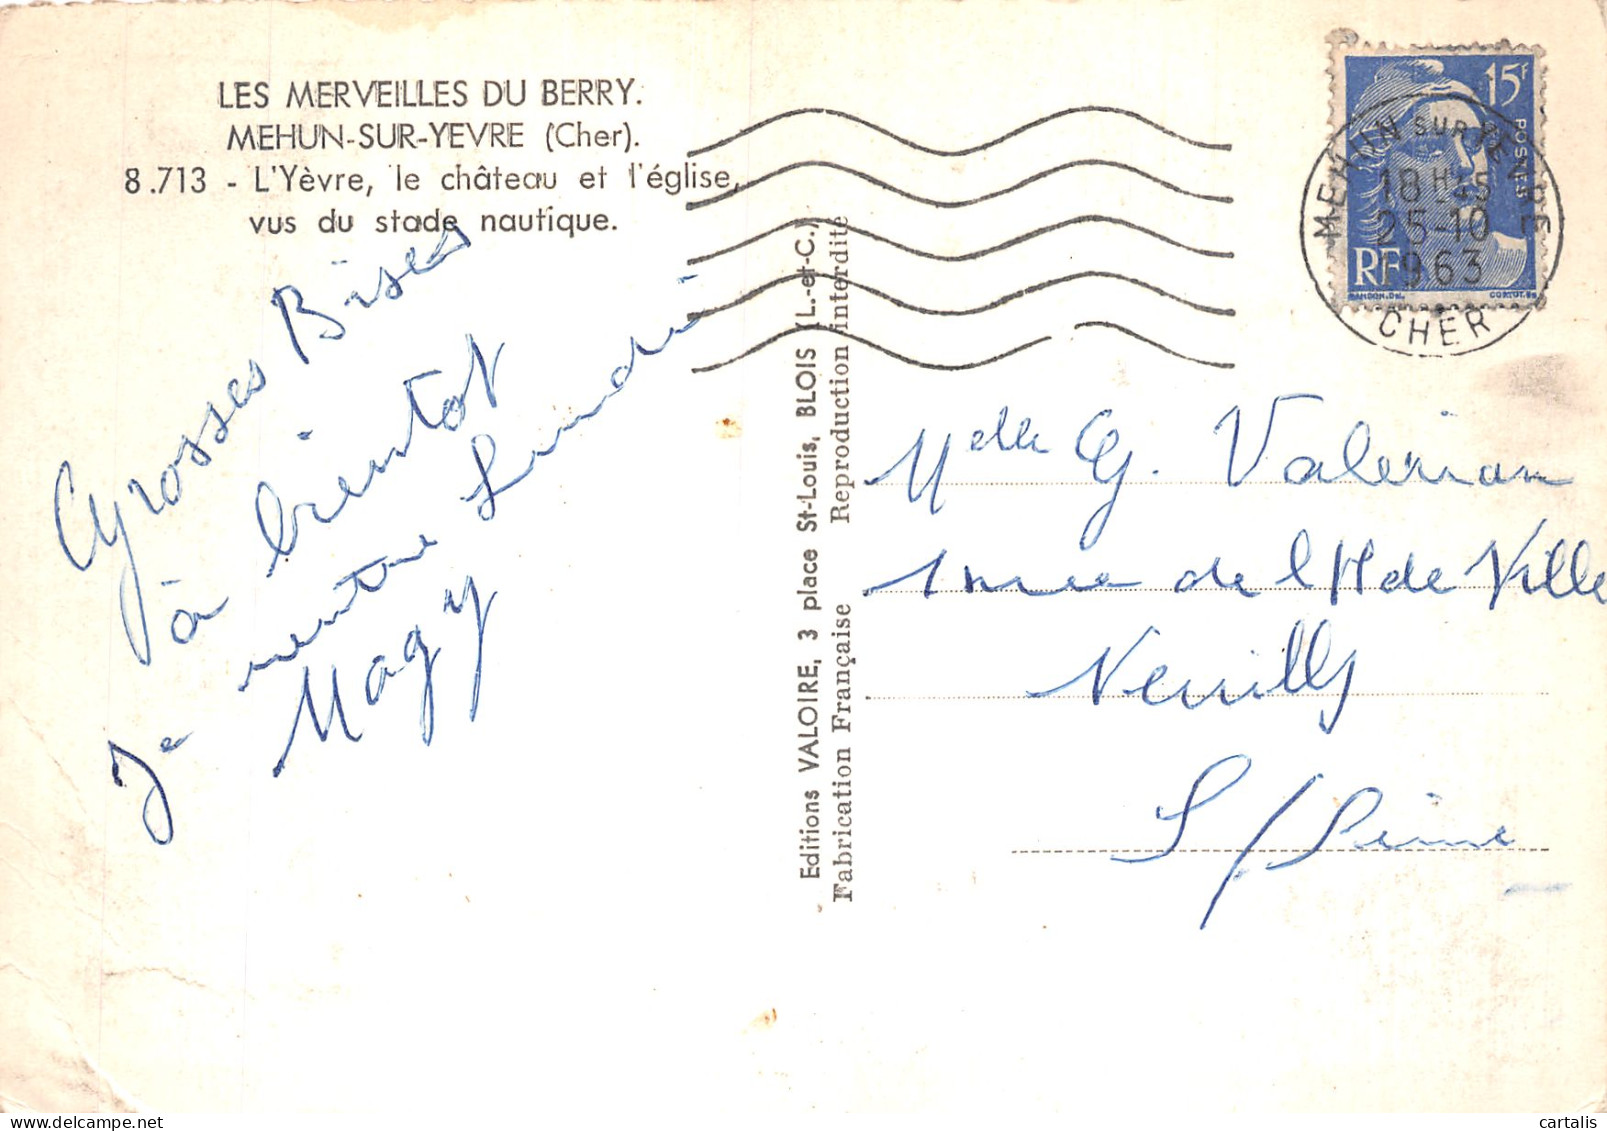 LES MERVEILLES DU BERRY.
MEHUN-SUR-YEVRE (Cher).
8.713 - L'Yèvre, le château et l'église,
vus du stade nautique.
Grosses Bises
à bientot
Je rentre Lundi
Magy
Editions VALOIRE, 3 place St-Louis, BLOIS (L.-et-C.)
Fabrication Française Reproduction interdite
15F
POSTES
RF
GANDON.DEL. CORTOT.SC
MEHUN SUR YEVRE
18H45
25-10
1963
CHER
Melle G. Valerian
1 rue de l'H de Ville
Neuilly
S/Seine
cartalis